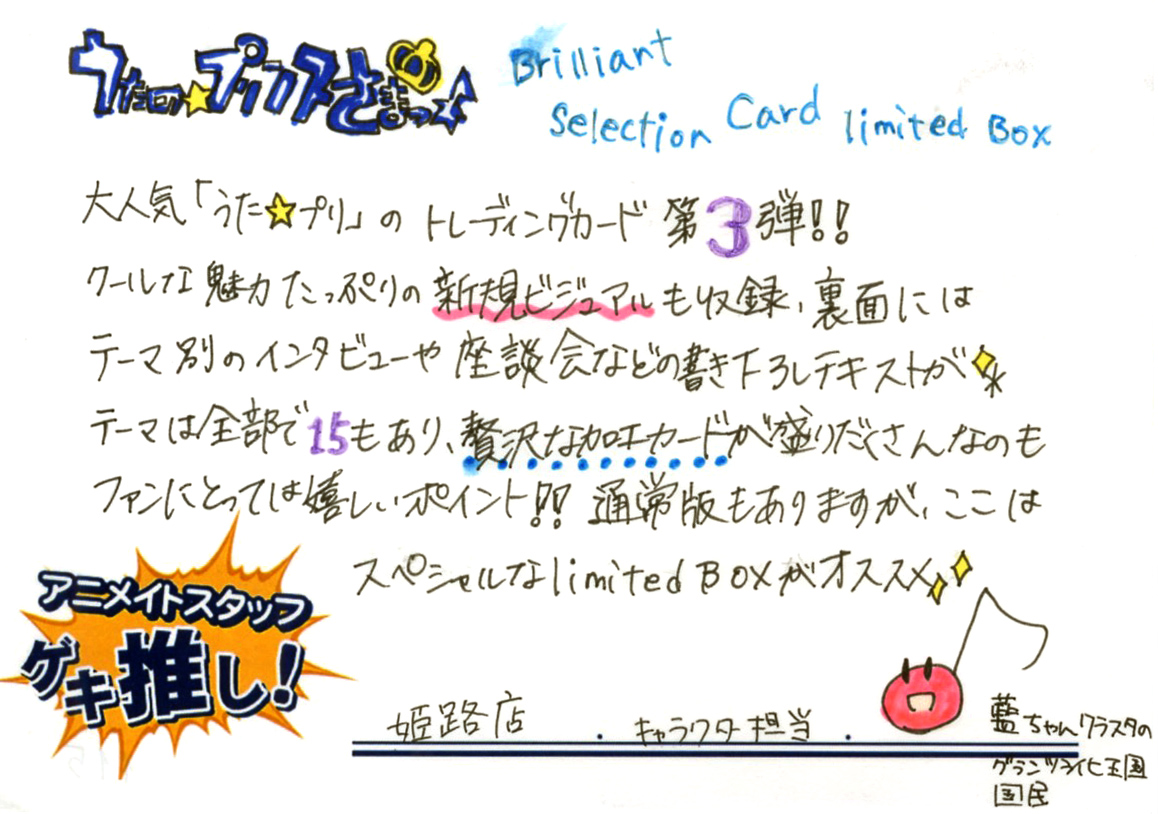 うたの☆プリンスさまっ♪
Brilliant
Selection Card limited Box
大人気「うた☆プリ」のトレーディングカード第3弾!!
クールな魅力たっぷりの新規ビジュアルも収録、裏面には
テーマ別のインタビューや座談会などの書き下ろしテキストが
テーマは全部で15もあり、贅沢な加工カードが盛りだくさんなのも
ファンにとっては嬉しいポイント!! 通常版もありますが、ここは
スペシャルなlimited BOXがオススメ
アニメイトスタッフ
ゲキ推し!
姫路店 ・ キャラクター担当 ・
藍ちゃんクラスタの
国民